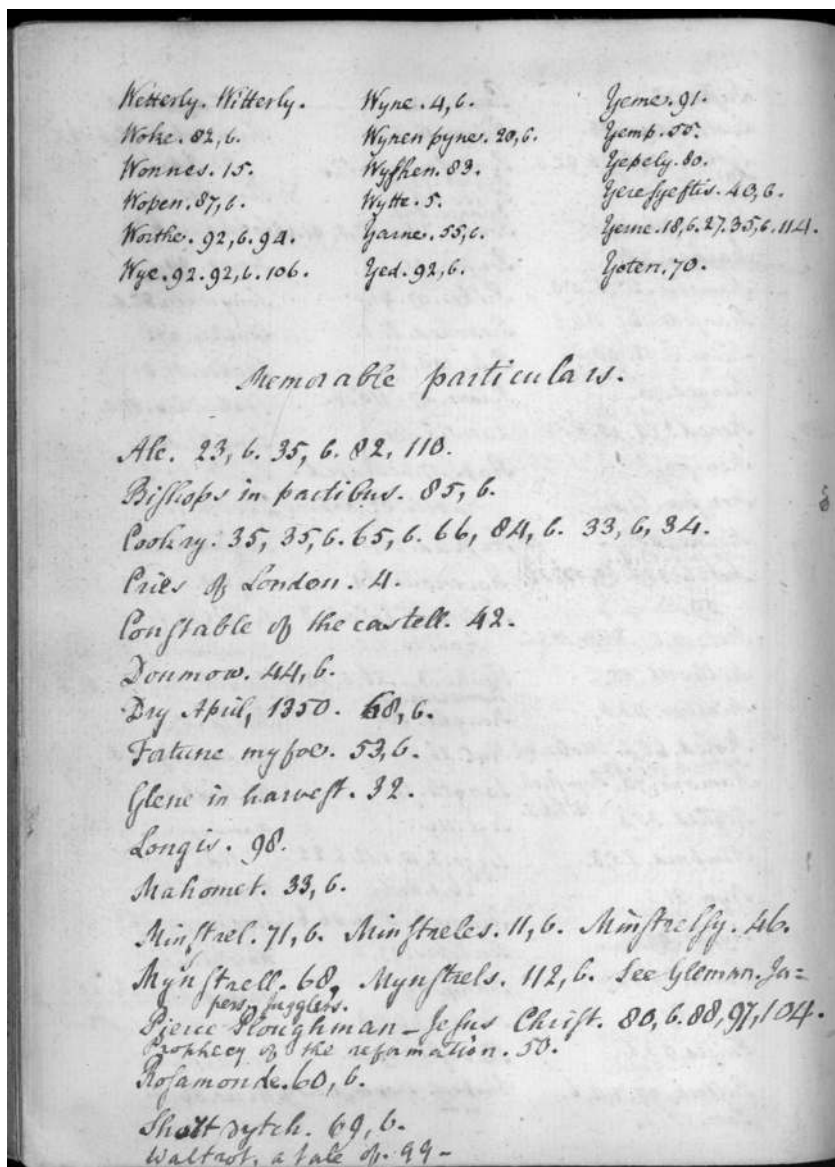 Wetterly. Witterly.
Woke. 82, b.
Wonnes. 15.
Wopen. 87, b.
Worthe. 92, b. 94.
Wye. 92. 92, b. 106.
Wyne. 4, b.
Wynen pyne. 20, b.
Wyſhen. 83.
Wytte. 5.
Yarne. 55, b.
Yed. 92, b.
Yeme. 91.
Yemp. 55.
Yepely. 80.
Yereſyeftis. 40, b.
Yerne. 18, b. 27. 35, b. 114.
Yoten. 70.
Memorable particulars.
Ale. 23, b. 35, b. 82, 110.
Biſhops in partibus. 85, b.
Cookry. 35, 35, b. 65, b. 66, 84, b. 33, b, 34.
Cries of London. 4.
Conſtable of the castell. 42.
Donmow. 44, b.
Dry April, 1350. 68, b.
Fortune my foe. 53, b.
Glene in harveſt. 32.
Longis. 98.
Mahomet. 33, b.
Minſtrel. 71, b. Minſtreles. 11, b. Minſtrelſy. 46.
Mynſtrell. 68, Mynſtrels. 112, b. See Gleman. Ja=
pers. Jugglers.
Pierce Ploughman – Jeſus Chriſt. 80, b. 88, 97, 104.
Prophecy of the reformation. 50.
Roſamonde. 60, b.
Short dytch. 69, b.
Waltrot, a tale of. 99 –